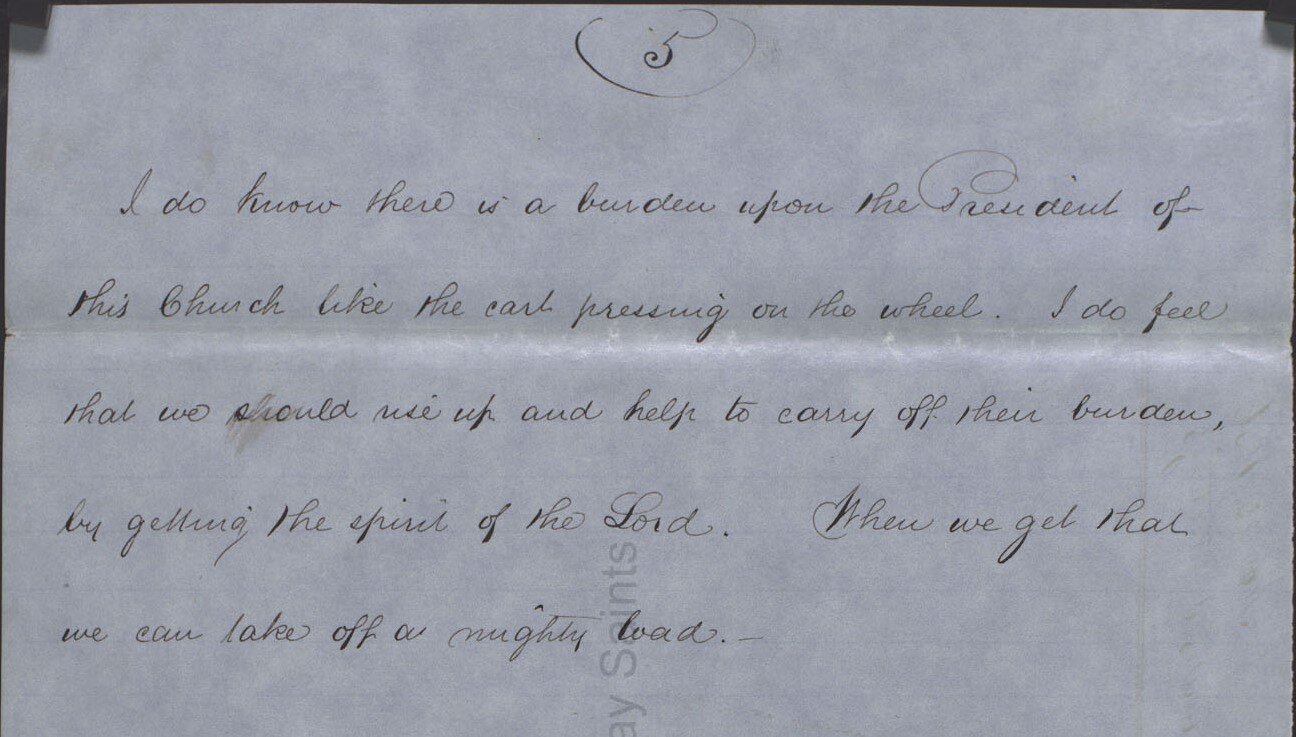 5
I do know there is a burden upon the President of
this Church like the cart pressing on the wheel. I do feel
that we should rise up and help to carry off their burden,
by getting the spirit of the Lord. When we get that
we can take off a mighty load. —
ay Saints